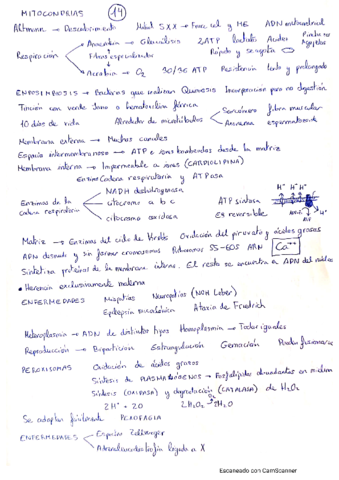 MITOCONDRIAS 14
Altmann → Descubrimiento Nobel SXX → Fcnes celul y ME ADN mitocondrial
Respiración
Anaerobia → Glucolisis 2ATP Lactato Aceites
Fibras especializadas Rápido y se agota
Aerobia → O2 30/36 ATP Resistencia lento y prolongado
ENDOSIMBIOSIS → Bacterias que realizan Quimiosis Incorporación pero no digestión
Tinción con verde Jano o hematoxilina férrica
10 días de vida Alrededor de microtúbulos
Sarcómero fibra muscular
Axonema espermatozoide
Membrana externa → Muchos canales
Espacio intermembranoso → ATP e iones bombeados desde la matriz
Membrana interna → Impermeable a iones (CARDIOLIPINA)
Enzimas Cadena respiratoria y ATPasa
Enzimas de la cadena respiratoria
NADH deshidrogenasa
citocromo a b c
citocromo oxidasa
ATP sintasa
Es reversible
H+ H+ H+
H+
Matriz → Enzimas del ciclo de Krebs Oxidación del piruvato y ácidos grasos
ADN desnudo y sin formar cromosomas Ribosomas 55-60S ARN Ca++
Sintetiza proteínas de la membrana interna. El resto se encuentra a ADN del núcleo
• Herencia exclusivamente materna
ENFERMEDADES Miopatías Neuropatías (NOH Leber)
Epilepsia mioclónica Ataxia de Friedrich
Heteroplasmia → ADN de distintos tipos Homoplasmia → Todos iguales
Reproducción → Bipartición Estrangulación Gemación Pueden fusionarse
PEROXISOMAS Oxidación de ácidos grasos
Síntesis de PLASMALÓGENOS → Fosfolípidos abundantes en mielina
Síntesis (OXIDASA) y degradación (CATALASA) de H2O2
2H+ 2O 2H2O2 → 2H2O
Se adaptan fácilmente PEXOFAGIA
ENFERMEDADES
Zellweger
Adrenoleucodistrofia ligada a X
Escaneado con CamScanner